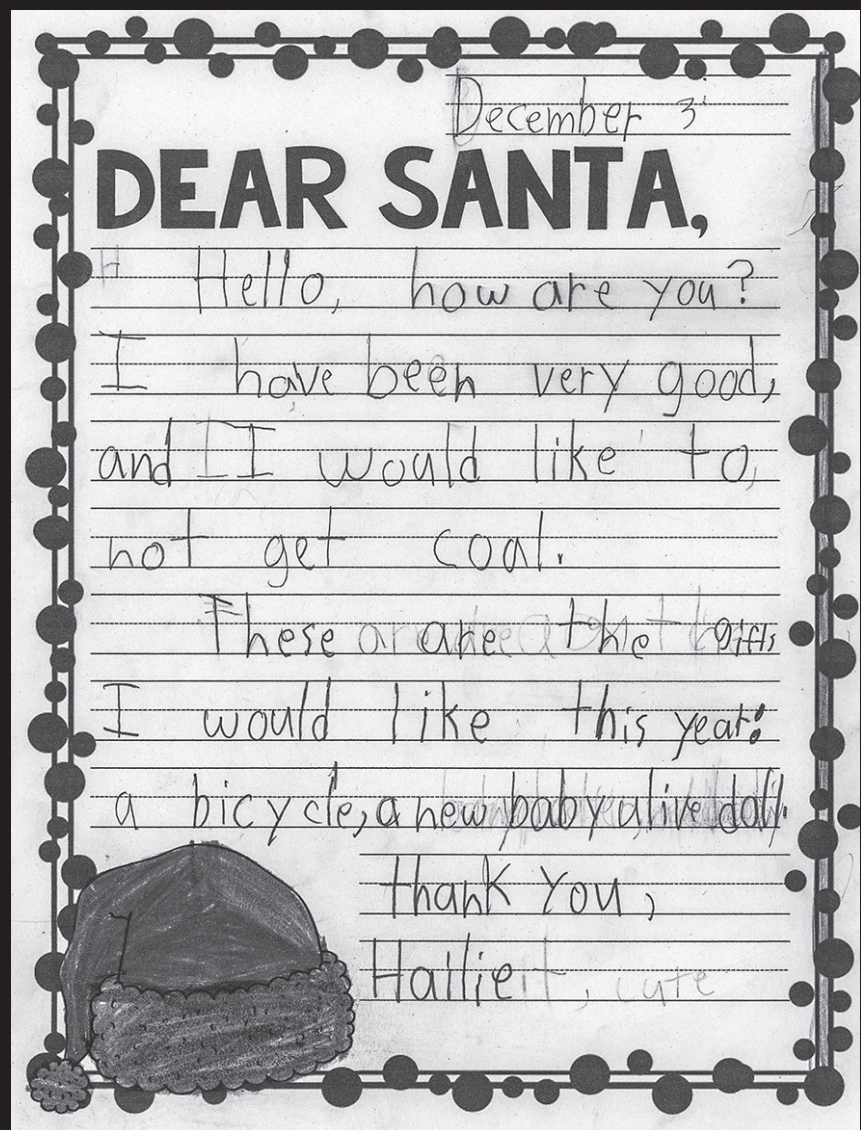 December 3
DEAR SANTA,
Hello, how are you?
I have been very good,
and I would like to
not get coal.
These are the gifts
I would like this year:
a bicycle, a new baby alive doll.
thank you,
Hailie